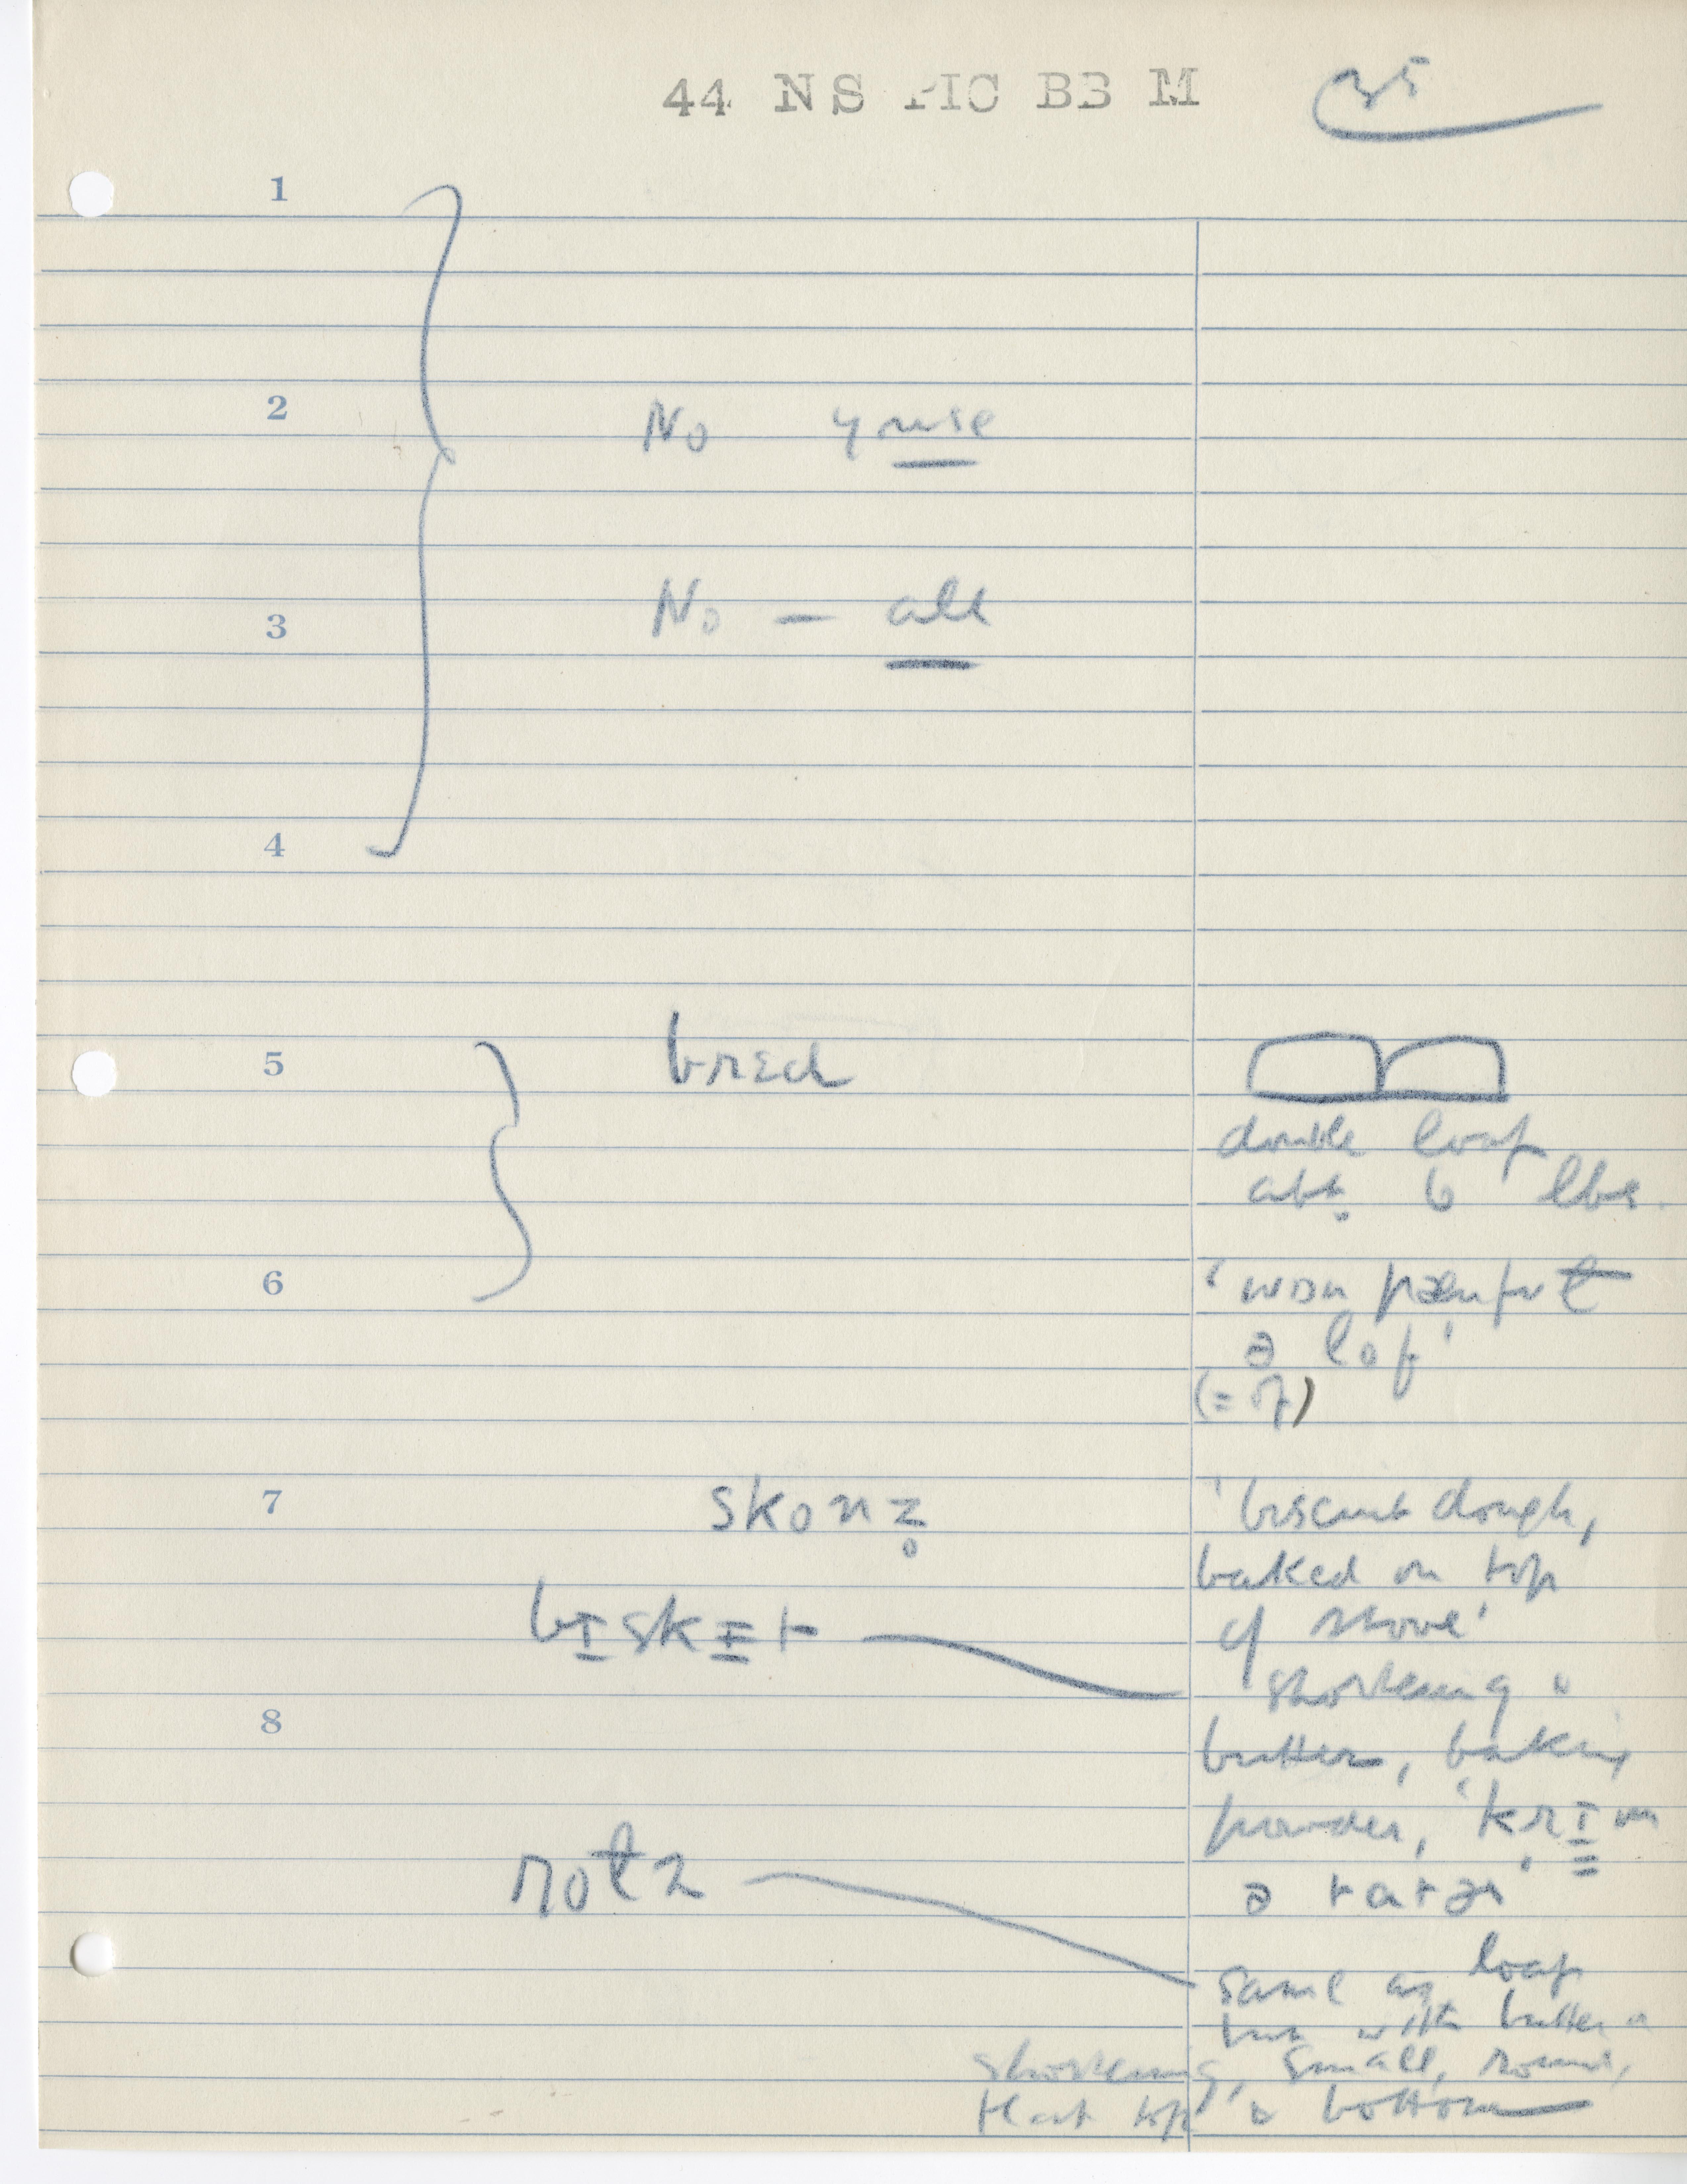 44 NS PIC BB M 35
1
2 No yuse
3 No — all
4
5 brɛd
double loaf
abt. 6 lbs.
6 'wɒn
ə lof'
(= of)
7 skonz̥ 'biscuit dough,
baked on top
of stove'
bɪskɪt
shortening
8 butter, baking
powder, 'krɪm
ə tatər'
rolz
same as loaf
but with butter
shortening, small, round,
flat top & bottom